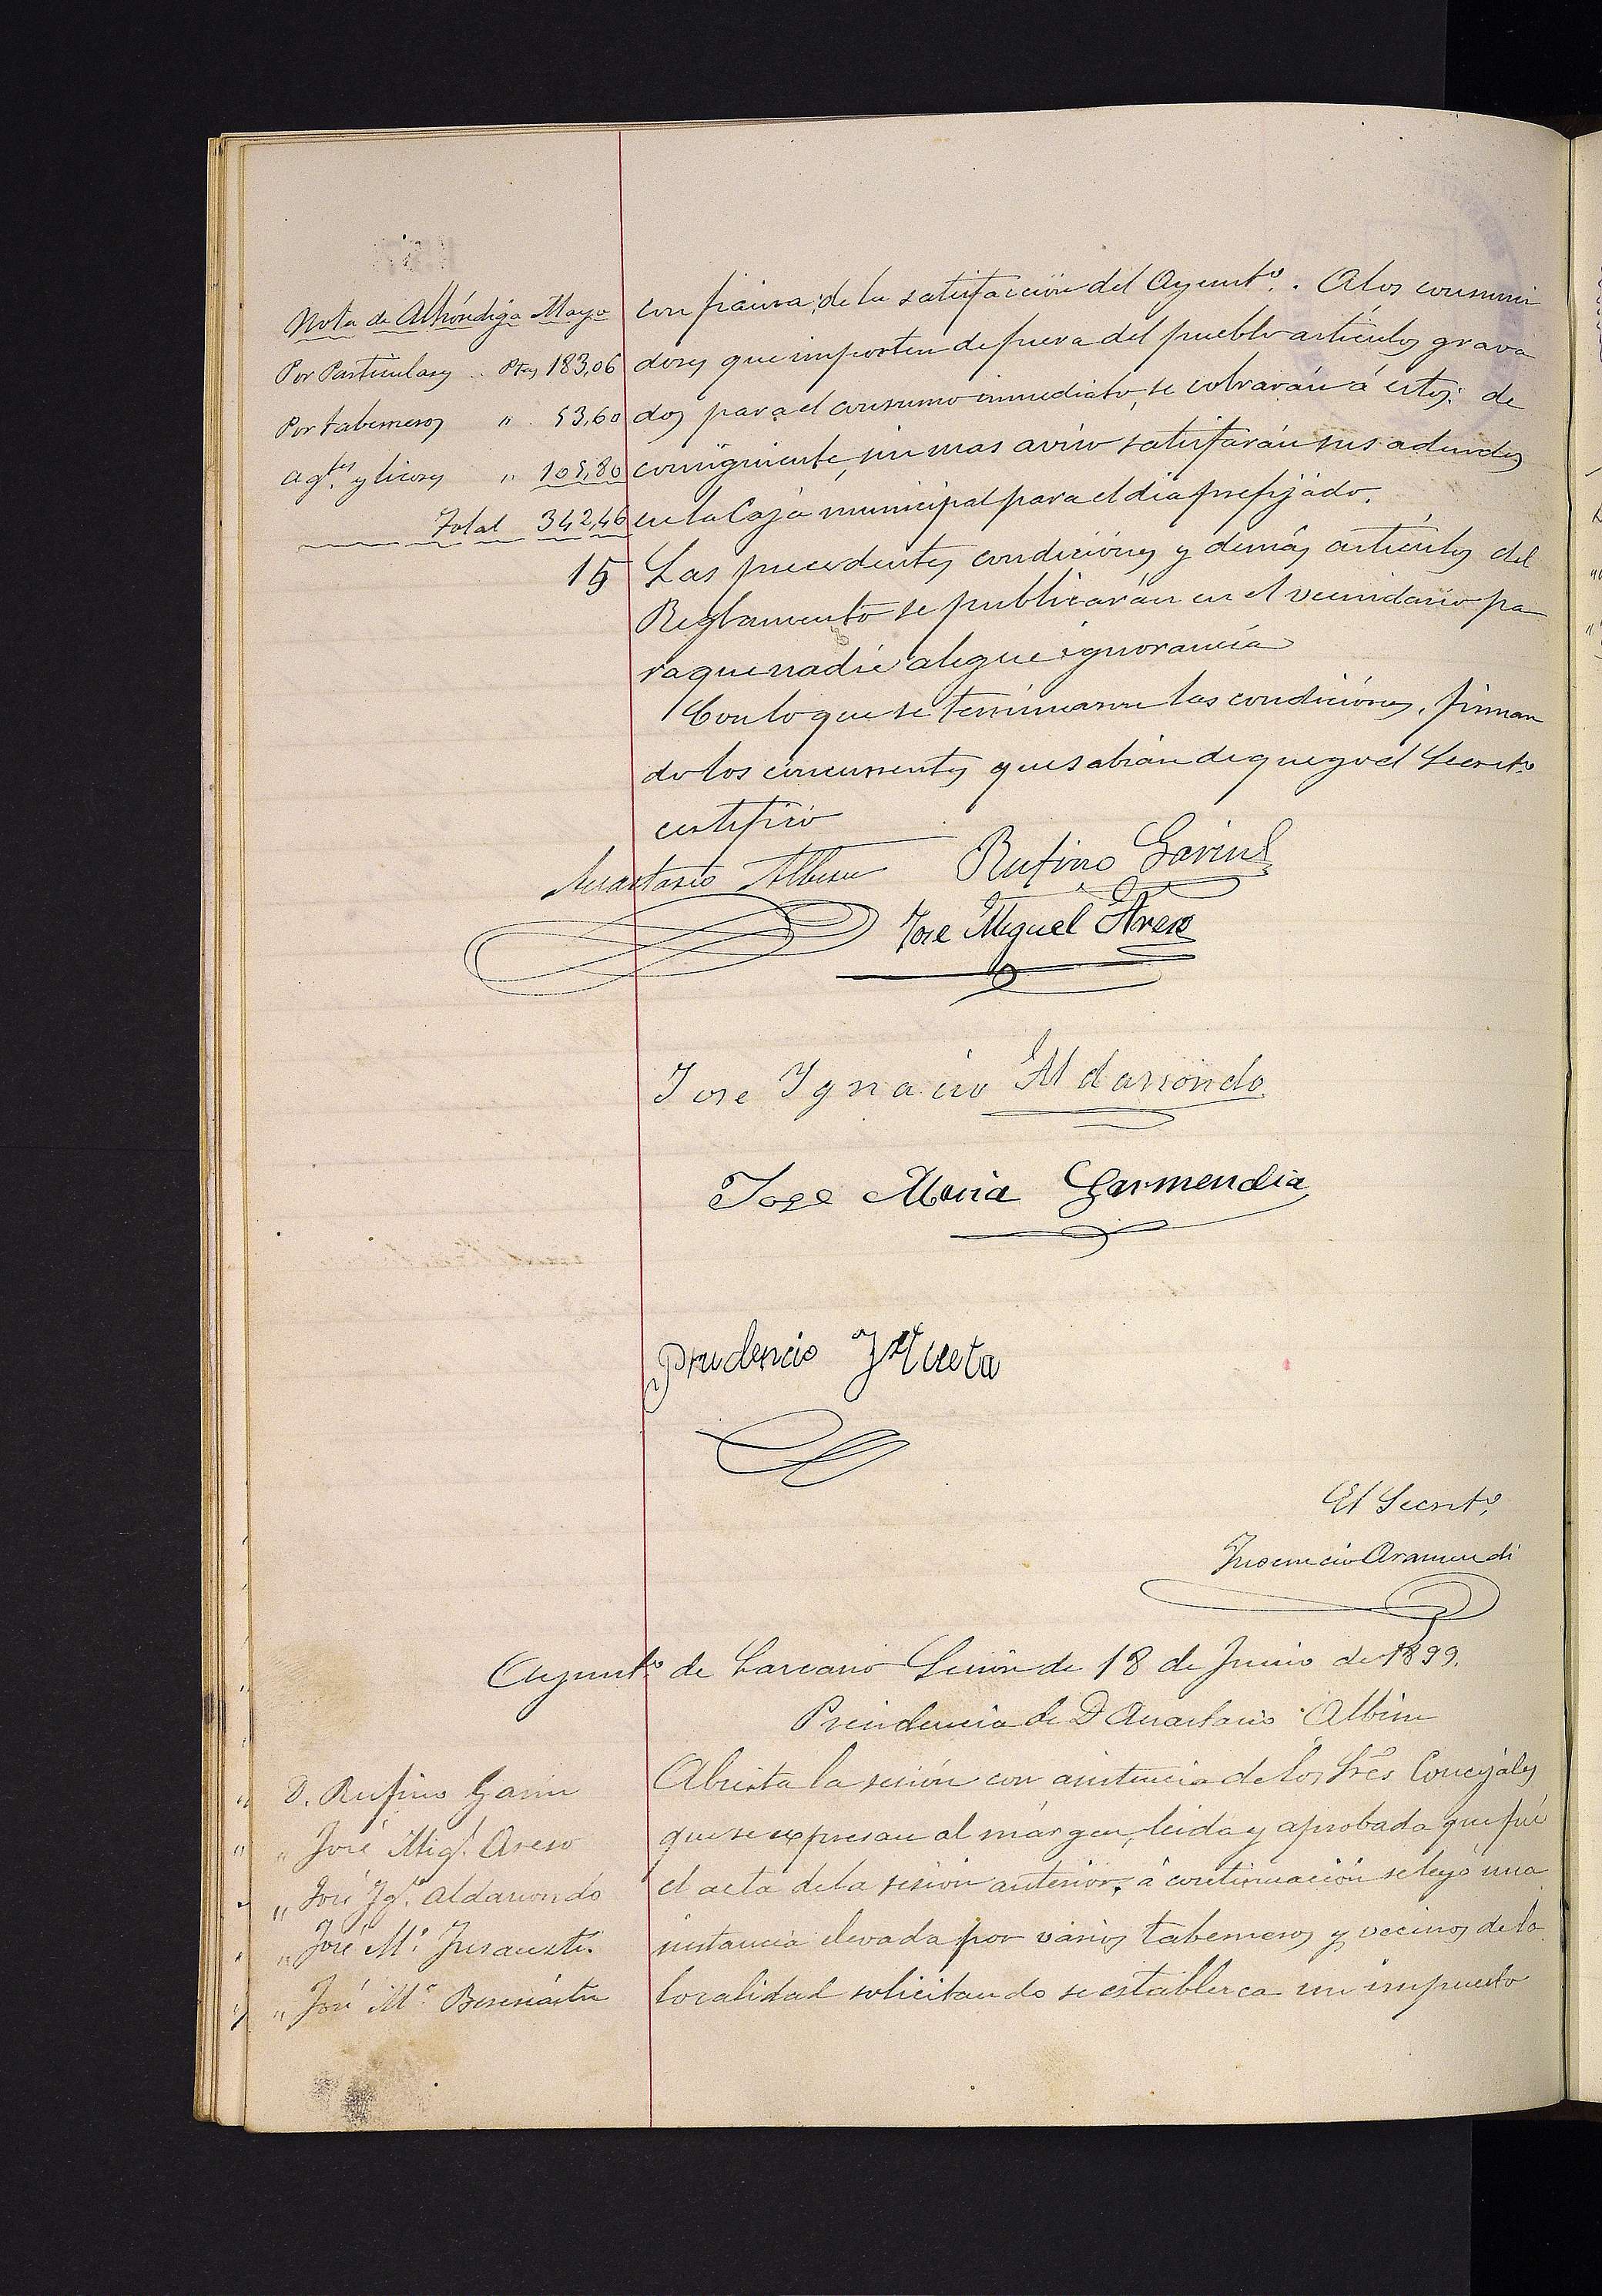 Nota de Alhóndiga Mayo
Por Particulares .. Ptas 183,06
Por taberneros " . 53,60
Agtes y licores " 105,80
Total 342,46
con fianza de la satisfacción del Ayunto. A los consumi
dores que importen de fuera del pueblo artículos grava
dos para el consumo inmediato, se cobrarán á estos: de
consiguiente, sin mas aviso satisfarán sus adeudos
en la Caja municipal para el dia prefijado.
15 Las precedentes condiciónes y demás artículos del
Reglamento se publicarán en el vecindario pa
ra que nadie alegue ignorancia
Con lo que se terminaron las condiciónes, firman
do los concurrentes que sabian de que yo el Secreto
certifico
Anastasio Albisu Rufino Garin
Jose Miguel Areso
Jose Ygnacio Aldarrondo
Jose Maria Garmendia
Prudencio Yztueta
El Secreto
Inocencio Aramendi
Ayunto de Zarcano Sesión de 18 de Junio de 1899.
Presidencia de D Anastasio Albisu
D. Rufino Garin
" José Migl. Areso
" José Igo. Aldarrondo
" José Ma.
" José Ma.
Abierta la sesión con asistencia de los Sres Concejales
que se expresan al márgen, leida y aprobada que fué
el acta de la sesión anterior, á continuación se leyó una
instancia elevada por varios taberneros y vecinos de la
localidad solicitando se establezca un impuesto